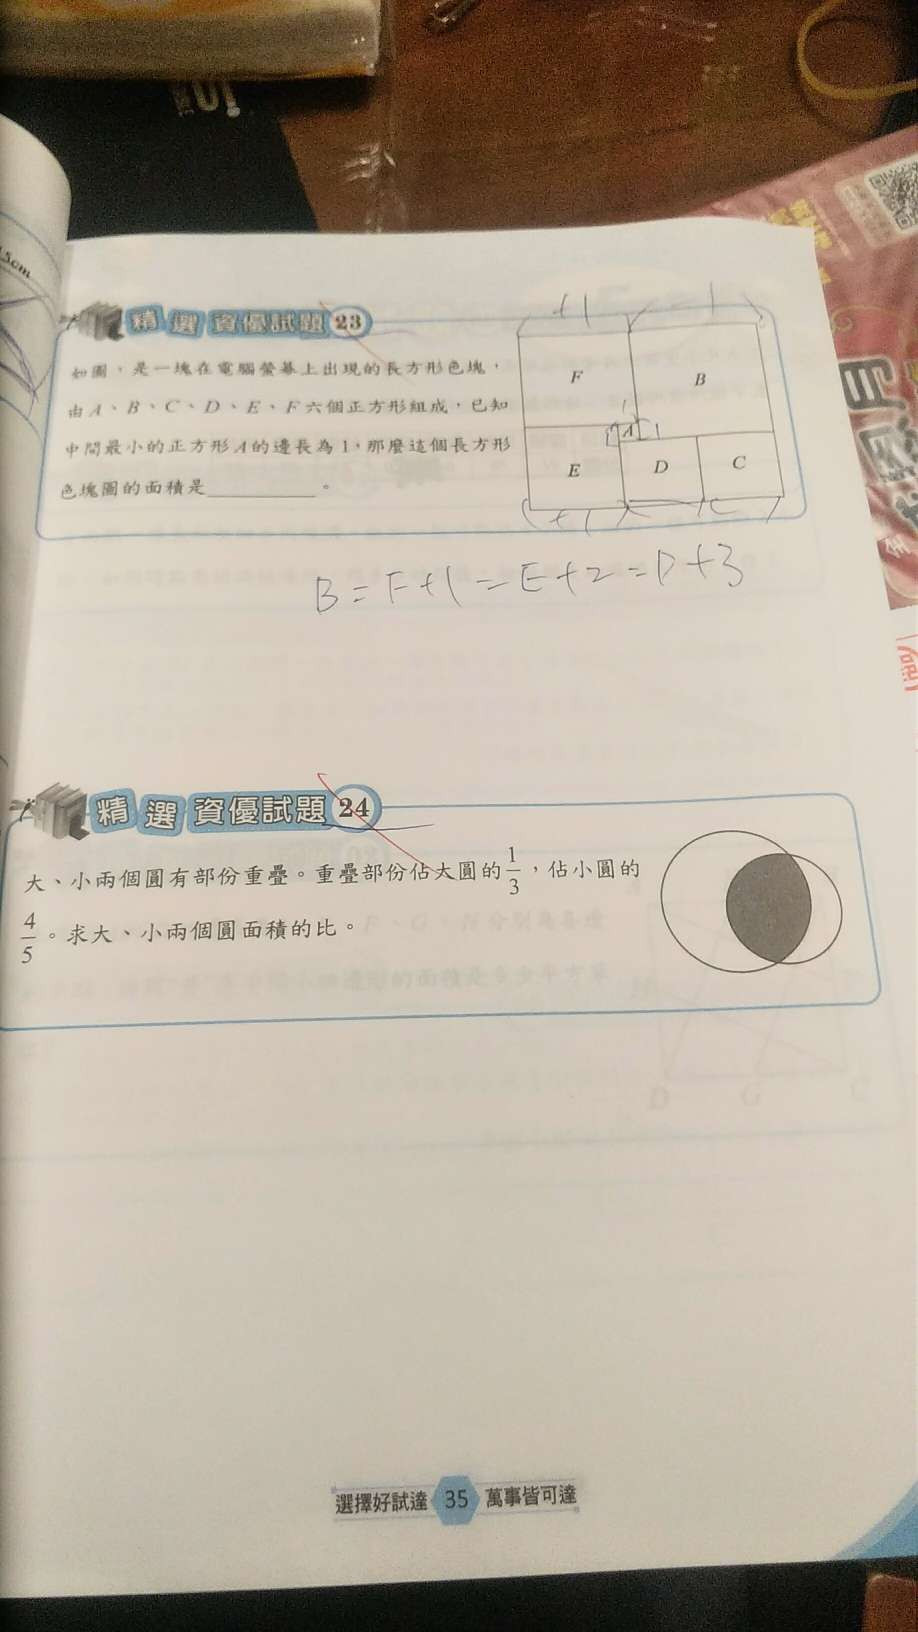 15cm
精選資優試題 23
如圖，是一塊在電腦螢幕上出現的長方形色塊，
由A、B、C、D、E、F六個正方形組成，已知
中間最小的正方形A的邊長為1，那麼這個長方形
色塊圖的面積是________。
+1
-1
F
B
1
1
A
1
E
D
C
+1
B=F+1=E+2=D+3
精選資優試題 24
大、小兩個圓有部份重疊。重疊部份佔大圓的1/3，佔小圓的
4/5。求大、小兩個圓面積的比。
D
G
C
選擇好試達 35 萬事皆可達